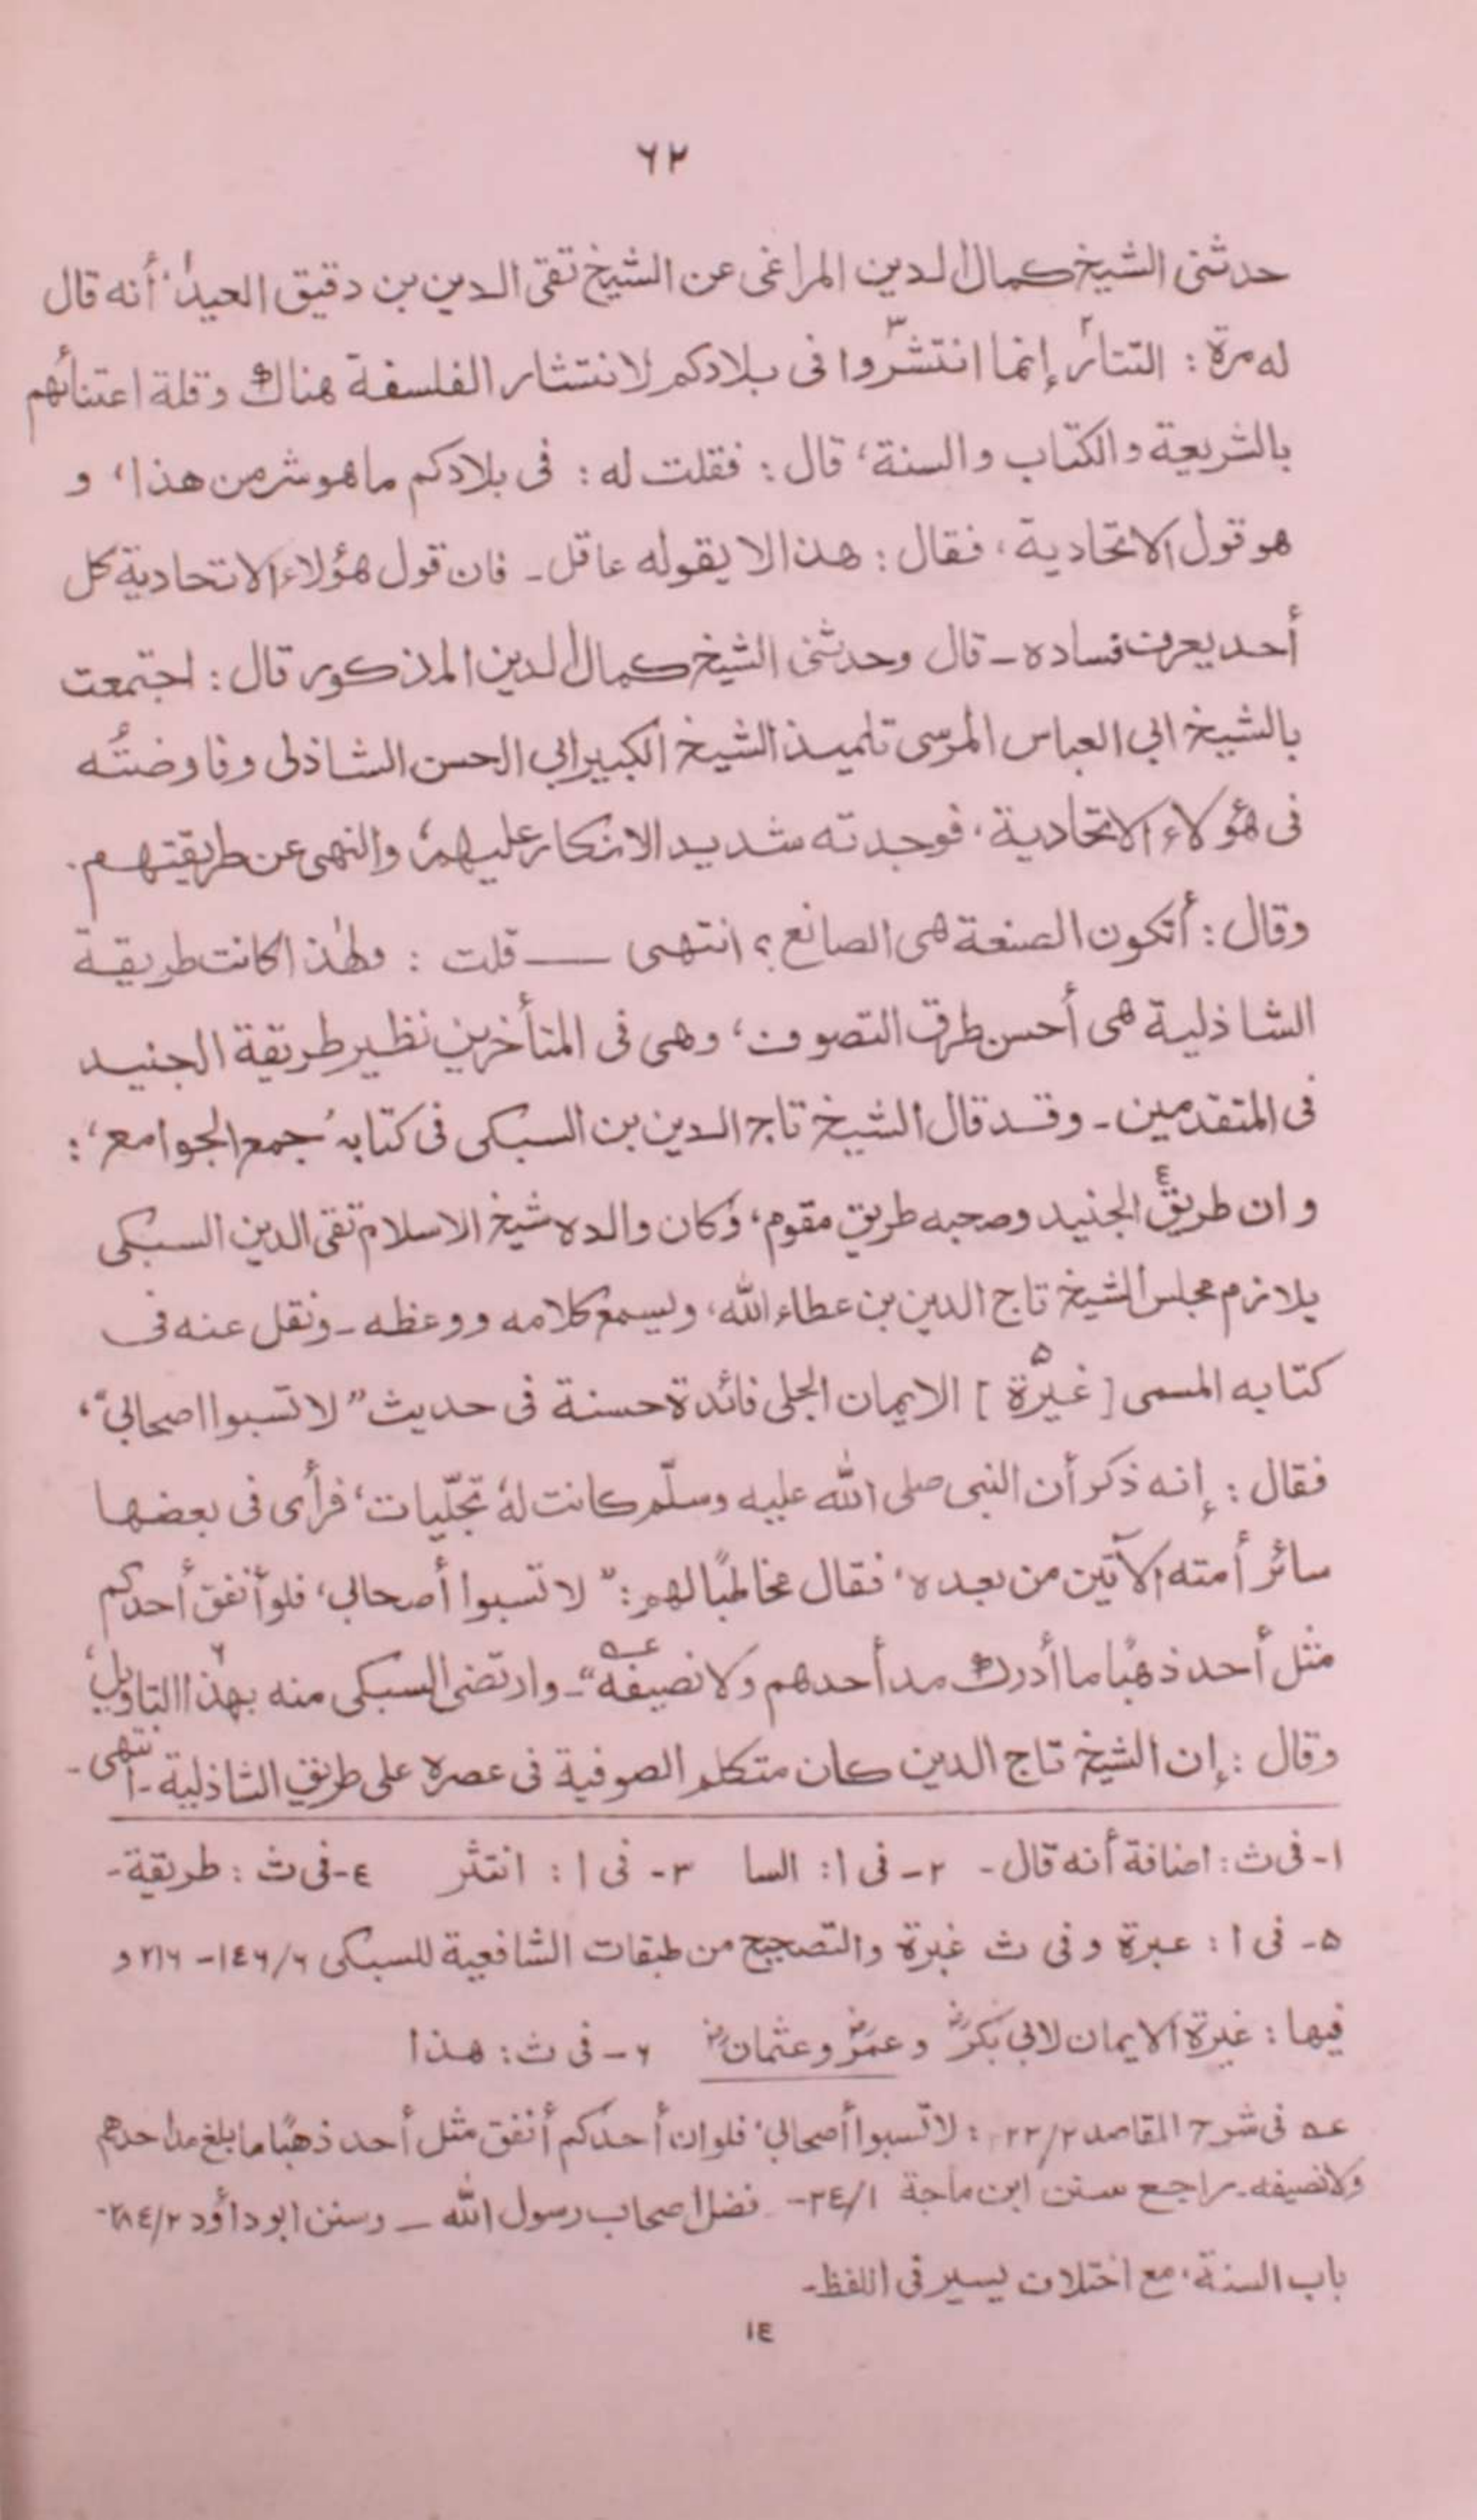 ٦٢
حدثنى الشيخ كمال الدين المراغى عن الشيخ تقى الدين بن دقيق العيد١، أنه قال
له مرة : التتار٢ إنما انتشروا٣ فى بلادكم لانتشار الفلسفة هناك وقلة اعتنائهم
بالشريعة والكتاب والسنة، قال : فقلت له : فى بلادكم ما هو شر من هذا، و
هو قول الاتحادية، فقال : هذا لا يقوله عاقل ـ فان قول هؤلاء الاتحادية كل
أحد يعرف فساده ـ قال وحدثنى الشيخ كمال الدين المذكور قال : اجتمعت
بالشيخ ابي العباس المرسى تلميذ الشيخ الكبير ابي الحسن الشاذلى وفاوضتُه
فى هؤلاء الاتحادية، فوجدته شديد الانكار عليهم، والنهى عن طريقتهم.
وقال : أتكون الصنعة هى الصانع؟ انتهى ـــ قلت : ولهٰذا كانت طريقة
الشاذلية هى أحسن طرق التصوف، وهى فى المتأخرين نظير طريقة الجنيد
فى المتقدمين ـ وقد قال الشيخ تاج الدين بن السبكى فى كتابه ’جمع الجوامع‘ :
و ان طريق٤ الجنيد وصحبه طريق مقوم، وكان والده شيخ الاسلام تقى الدين السبكى
يلازم مجلس الشيخ تاج الدين بن عطاء الله، ويسمع كلامه ووعظه ـ ونقل عنه فى
كتابه المسمى [ غيرة٥ ] الايمان الجلى فائدة حسنة فى حديث ”لا تسبوا اصحابي“،
فقال : إنه ذكر أن النبى صلى الله عليه وسلّم كانت لهٗ تجلّيات، فرأى فى بعضها
سائر أمته الآتين من بعده، فقال مخاطبًا لهم : ”لا تسبوا أصحابي، فلو أنفق أحدكم
مثل أحد ذهبًا ما أدرك مد أحدهم ولا نصيفه“ عـه ـ وارتضى السبكى منه بهٰذا٦ التاويل،
وقال : إن الشيخ تاج الدين كان متكلم الصوفية فى عصره على طريق الشاذلية ـ انتهى ـ
١ـ فى ث : اضافة أنه قال ـ ٢ـ فى ا : السا ٣ـ فى ا : انتثر ٤ـ فى ث : طريقة ـ
٥ـ فى ا : عبرة وفى ث غبرة والتصحيح من طبقات الشافعية للسبكى ١٤٦/٦ ـ ٢١٦ و
فيها : غيرة الايمان لابي بكرؓ وعمرؓ وعثمانؓ ٦ـ فى ث : هذا
عـه فى شرح المقاصد ٢٢/٢ : لا تسبوا أصحابي، فلو ان أحدكم أنفق مثل أحد ذهبًا ما بلغ مد احدهم
ولا نصيفه ـ راجع سنن ابن ماجة ٣٤/١ ـ فضل اصحاب رسول الله ـ وسنن ابو داؤد ٢٨٤/٢ ـ
باب السنة، مع اختلاف يسير فى اللفظ ـ
١٤